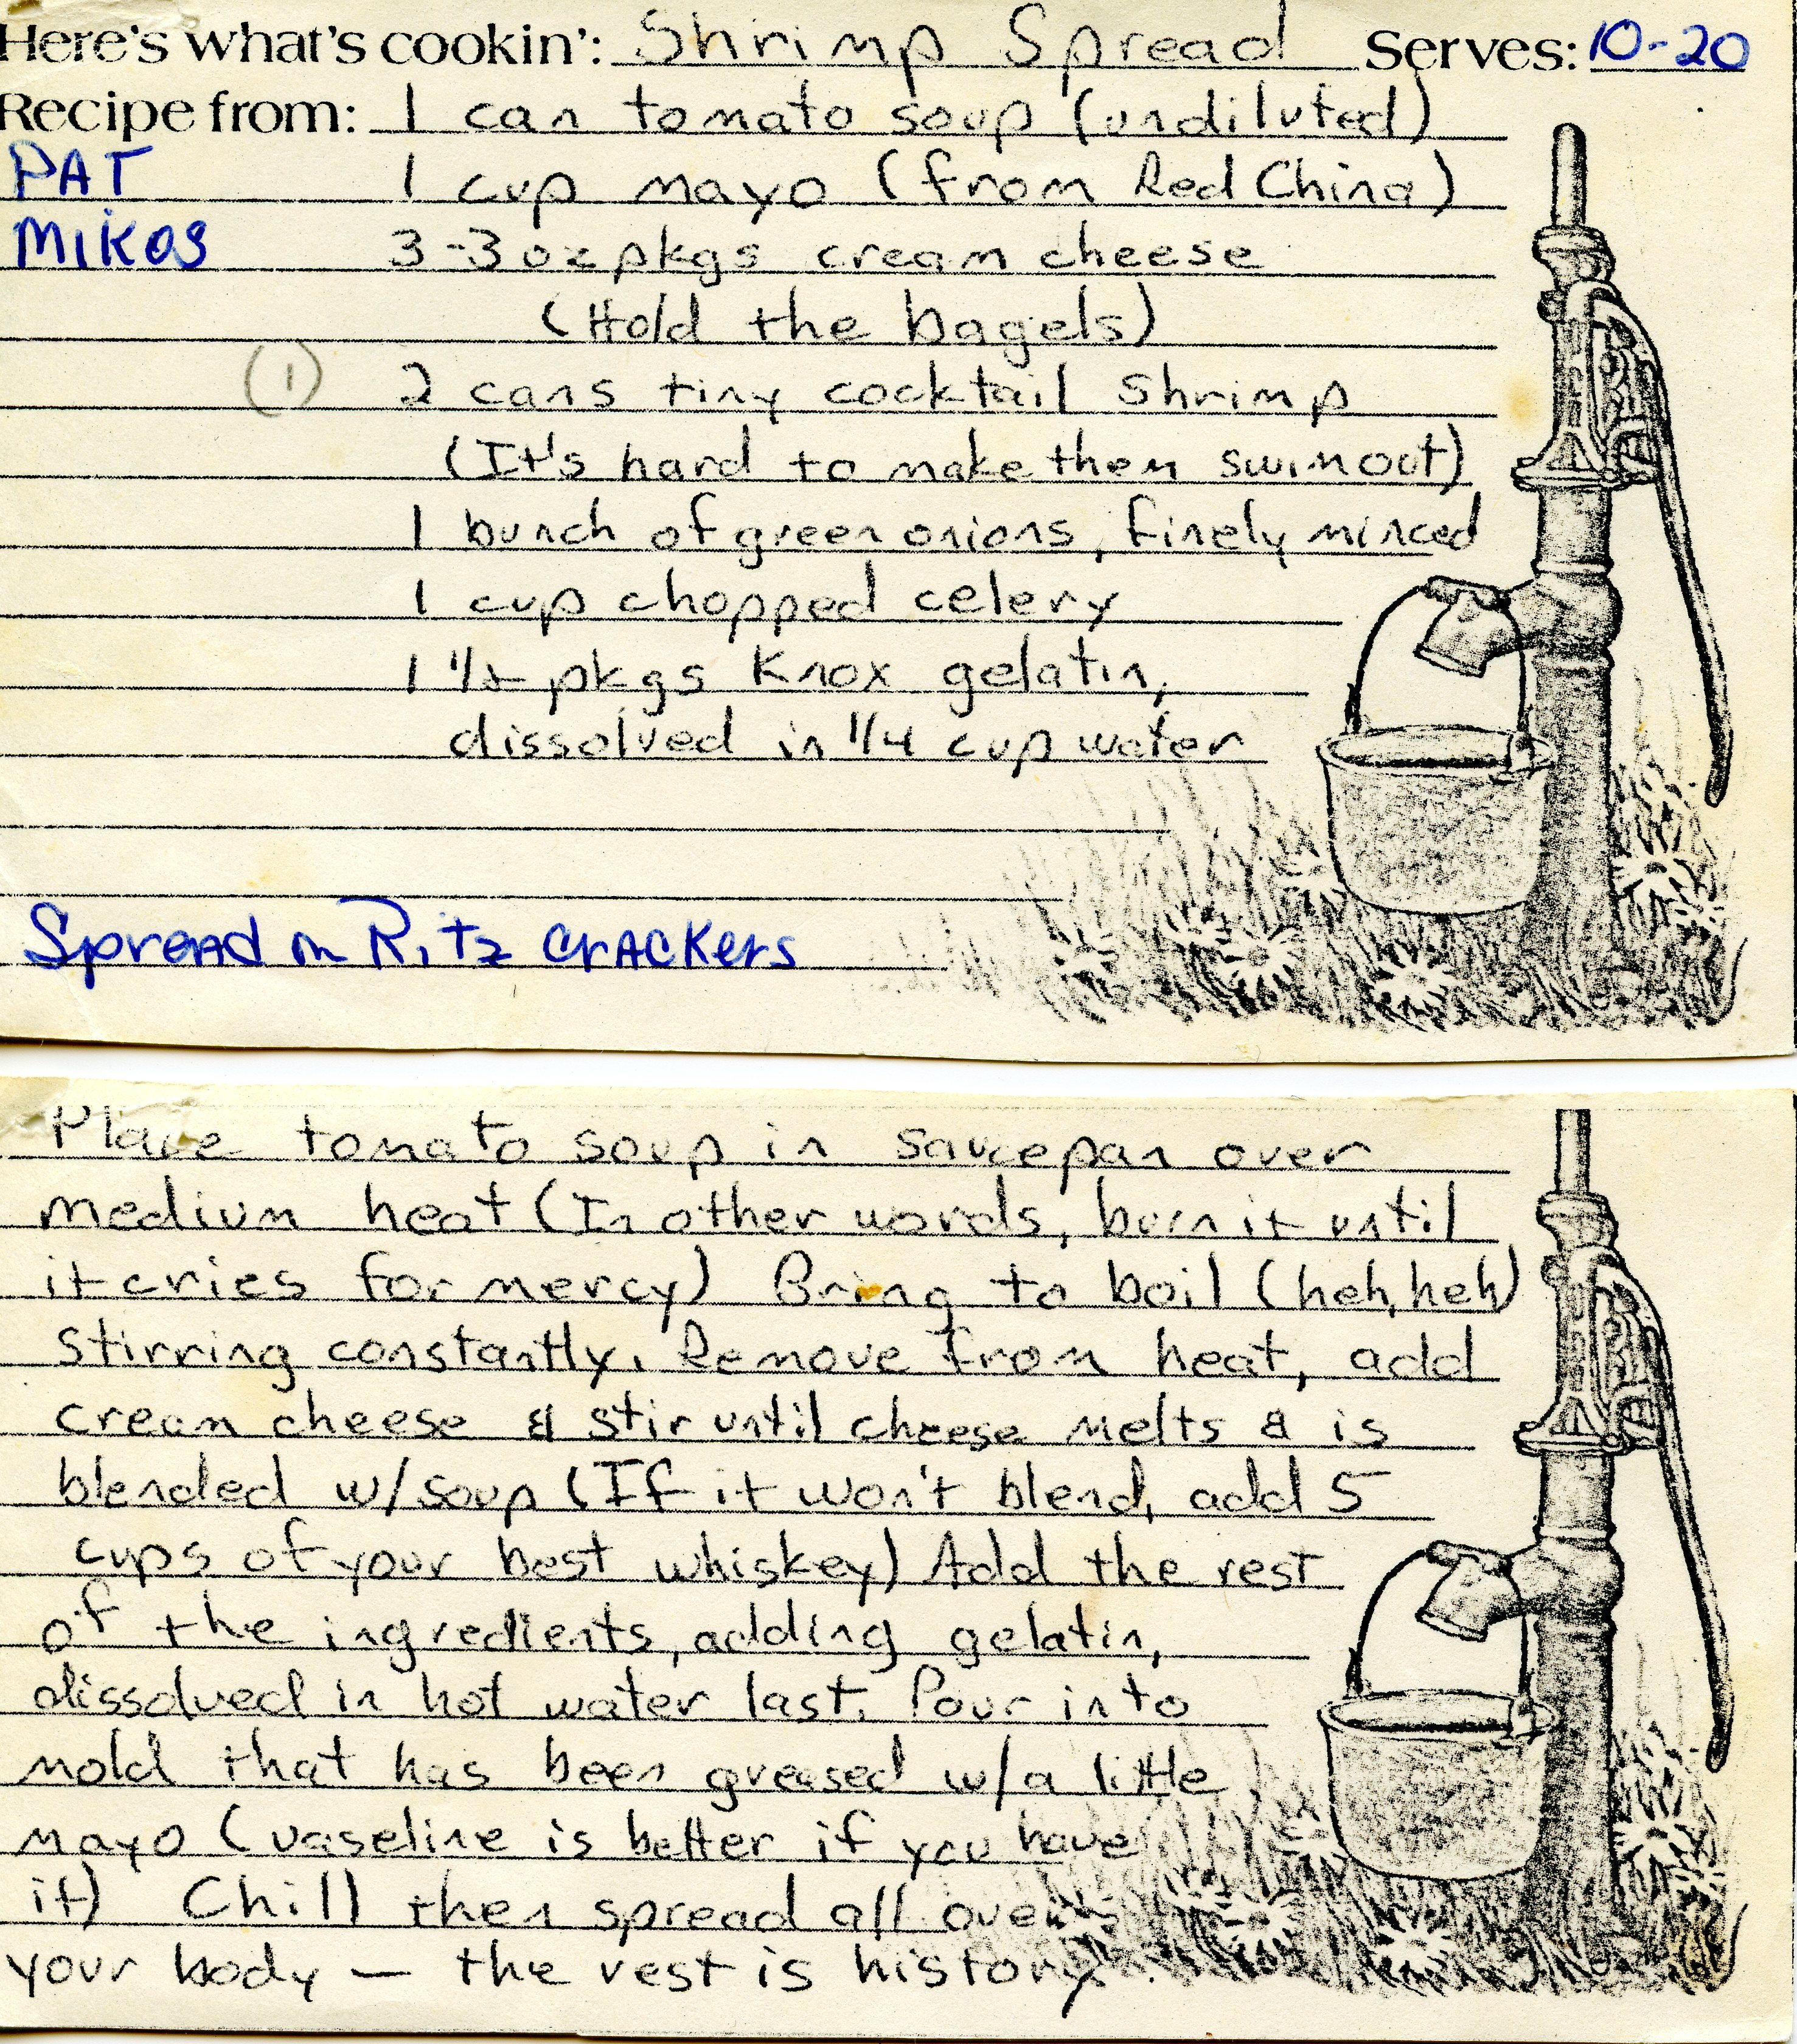 Here's what's cookin': Shrimp Spread Serves: 10-20
Recipe from: 1 can tomato soup (undiluted)
PAT 1 cup mayo (from Red China)
MIKOS 3-3oz pkgs cream cheese
(Hold the bagels)
(1) 2 cans tiny cocktail shrimp
(It's hard to make them swim out)
1 bunch of green onions, finely minced
1 cup chopped celery
1 1/2 pkgs Knox gelatin,
dissolved in 1/4 cup water
Spread on Ritz crackers
Place tomato soup in saucepan over
medium heat (In other words, burn it until
it cries for mercy) Bring to boil (heh, heh)
stirring constantly. Remove from heat, add
cream cheese & stir until cheese melts & is
blended w/soup (If it won't blend, add 5
cups of your best whiskey) Add the rest
of the ingredients, adding gelatin,
dissolved in hot water last. Pour into
mold that has been greased w/a little
mayo (vaseline is better if you have
it) Chill then spread all over
your body — the rest is history.